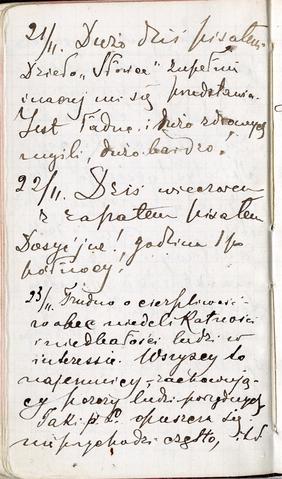 21/II. Dużo dziś pisałem.
Dzieło „Słońce" zupełnie
inaczej mi się przedstawia.
Jest ładne i dużo zdrowych
myśli, dużo bardzo.
22/II. Dziś wieczorem
z zapałem pisałem
Dosyć już!, godzina 1 po
północy!
23/II. Trudno o cierpliwość
wobec niedelikatności
i niedbałości ludzi w
interesie. Wszyscy to
najemnicy, zachowują-
cy pozory ludzi porządnych
Taki p. L. opuszcza się
nie przychodzi często,